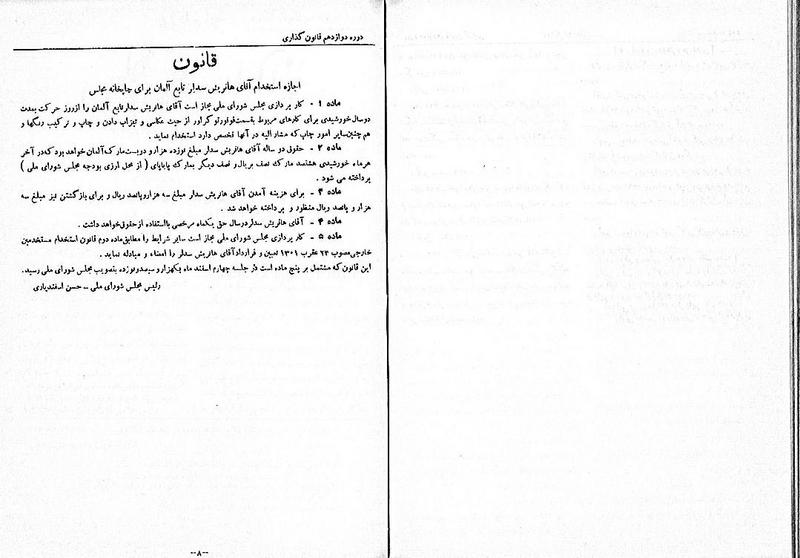 دوره دوازدهم قانون گذاری
قانون
اجازه استخدام آقای هانریش سدلر تابع آلمان برای چاپخانه مجلس
ماده ۱ - کار پردازی مجلس شورای ملی مجاز است آقای هانریش سدلر تابع آلمان را از روز حرکت بمدت
دو سال خورشیدی برای کارهای مربوط بقسمت فوتورتو گراور از حیث عکاسی و تیزاب دادن و چاپ و ترکیب رنگها و
هم چنین سایر امور چاپ که مشار الیه در آنها تخصص دارد استخدام نماید .
ماده ۲ - حقوق دو ساله آقای هانریش سدلر مبلغ نوزده هزار و دویست مارک آلمان خواهد بود که در آخر
هر ماه خورشیدی هشتصد مارک نصف بریال و نصف دیگر بمارک پایاپای ( از محل ارزی بودجه مجلس شورای ملی )
پرداخته می شود .
ماده ۳ - برای هزینه آمدن آقای هانریش سدلر مبلغ سه هزار و پانصد ریال و برای بازگشتن نیز مبلغ سه
هزار و پانصد ریال منظور و پرداخته خواهد شد .
ماده ۴ - آقای هانریش سدلر در سال حق یکماه مرخصی با استفاده از حقوق خواهد داشت .
ماده ۵ - کار پردازی مجلس شورای ملی مجاز است سایر شرایط را مطابق ماده دوم قانون استخدام مستخدمین
خارجی مصوب ۲۳ عقرب ۱۳۰۱ تعیین و قرارداد آقای هانریش سدلر را امضاء و مبادله نماید .
این قانون که مشتمل بر پنج ماده است در جلسه چهارم اسفند ماه یکهزار و سیصد و نوزده بتصویب مجلس شورای ملی رسید.
رئیس مجلس شورای ملی - حسن اسفندیاری
--۸--